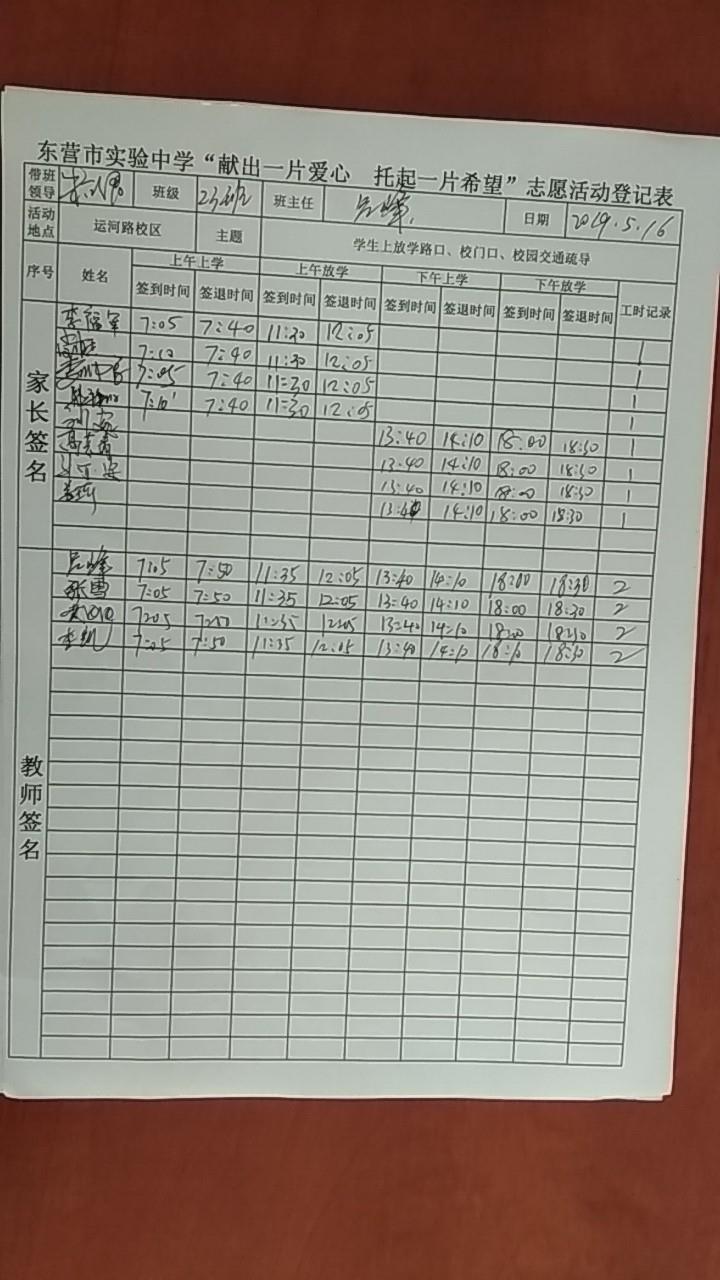 东营市实验中学“献出一片爱心 托起一片希望”志愿活动登记表
带班领导 班级 23班 班主任 吕峰 日期 2019.5.16
活动地点 运河路校区 主题 学生上放学路口、校门口、校园交通疏导
序号 姓名 上午上学 上午放学 下午上学 下午放学 工时记录
签到时间 签退时间 签到时间 签退时间 签到时间 签退时间 签到时间 签退时间
家长签名
李福军 7:05 7:40 11:30 12:05 1
7:10 7:40 11:30 12:05 1
7:05 7:40 11:30 12:05 1
7:10 7:40 11:30 12:05 1
13:40 14:10 18:00 18:30 1
13:40 14:10 18:00 18:30 1
13:40 14:10 18:00 18:30 1
13:40 14:10 18:00 18:30 1
教师签名
吕峰 7:05 7:50 11:35 12:05 13:40 14:10 18:00 18:30 2
张雪 7:05 7:50 11:35 12:05 13:40 14:10 18:00 18:30 2
7:05 7:50 11:35 12:05 13:40 14:10 18:00 18:30 2
李凯 7:05 7:50 11:35 12:05 13:40 14:10 18:10 18:30 2